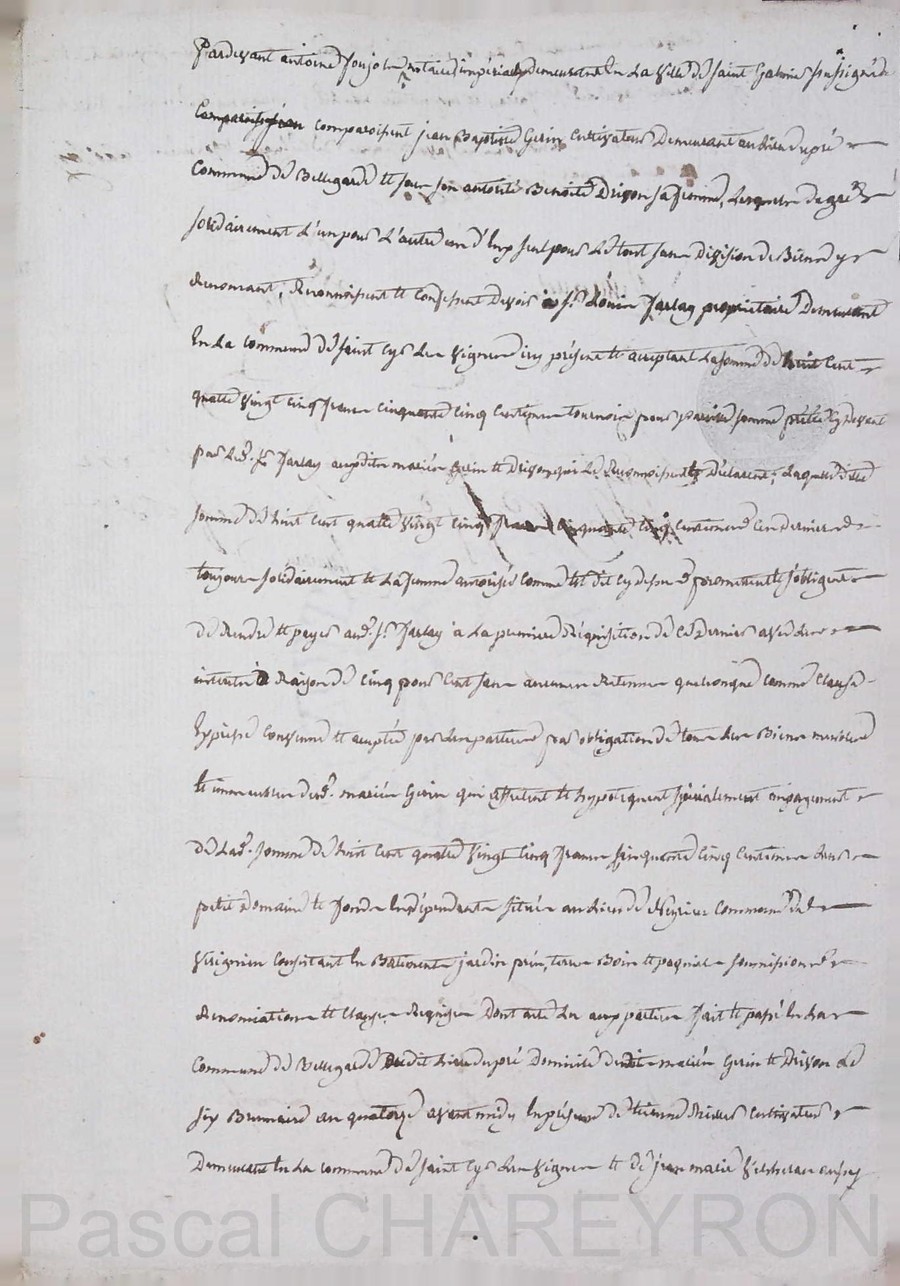 Pardevant antoine notaire impérial demeurant en La ville de Saint Galmier soussigné
comparoissent jean Baptiste Gerin Cultivateur Demeurant au lieu dupré
Commune de Bellegarde et sous son autorité Benoite Drizon sa femme, Lesquels de gré
solidairement L'un pour L'autre un d'Eux seul pour Le tout sans Division de Biens y
Renonçant, Reconnoissent et Confessent Devoir à Sr. Tarlay propriétaire Demeurant
En La commune de Saint Cyr Les Vignes icy présent et acceptant La somme de huit Cent
quatre vingt cinq francs cinquante cinq Centimes tournois pour pareille somme prêtée cy devant
par Led. Sr. Tarlay auxdits mariés Gerin et Drizon qui Le Reconnoissent et Déclarent, Laquelle dite
somme de huit Cent quatre vingt cinq francs cinquante cinq Centimes Ces derniers
toujours solidairement et La femme autorisée comme est dit cy dessus promettent et s'obligent
de Rendre et payer aud. Sr. Tarlay à La premiere Réquisition de Ce Dernier avec Les
intérêts à Raison de Cinq pour Cent sans aucune Retenue quelconque comme Clause
Expresse Convenue et acceptée par Les parties par obligation de tous Leurs Biens meubles
et immeubles desd. mariés Gerin qui affectent et hypotequent spécialement au payement
de Lad. somme de huit Cent quatre vingt Cinq francs Cinquante Cinq Centimes Leur
petit Domaine et fonds En dépendants situés au Lieu de commune de
Virignieu Consistant En Batiments jardin prés, terres Bois et paquiers soumissions
Renonciations et Clauses Requises Dont acte Lu aux parties fait et passé En La
Commune de Bellegarde Dudit Lieu dupré Domicile desdits mariés Gerin et Drizon Le
six Brumaire an quatorze avant midy En présence de Etienne Cultivateur
Demeurant En La commune de Saint Cyr Les Vignes et de jean marie
Pascal CHAREYRON